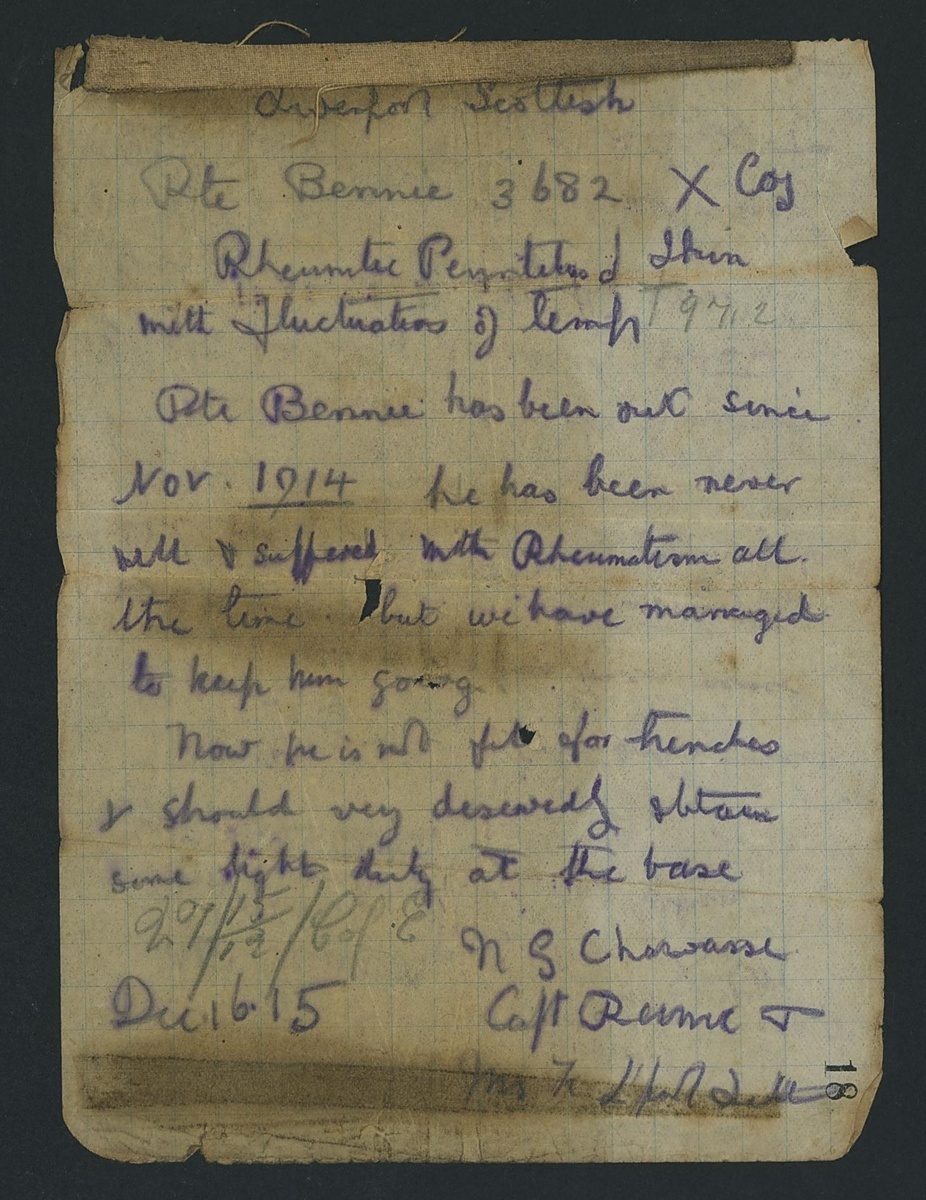 Liverpool Scottish
Pte Bennie 3682 X Coy
Rheumatic Skin
with fluctuations of temp T 97.2
Pte Bennie has been out since
Nov. 1914 he has been never
well & suffered with Rheumatism all
the time. but we have managed
to keep him going
Now he is not fit for trenches
& should very deservedly obtain
some light duty at the base
N G Chavasse
Dec 16 15 Capt RAMC T
L'pool Scott
18